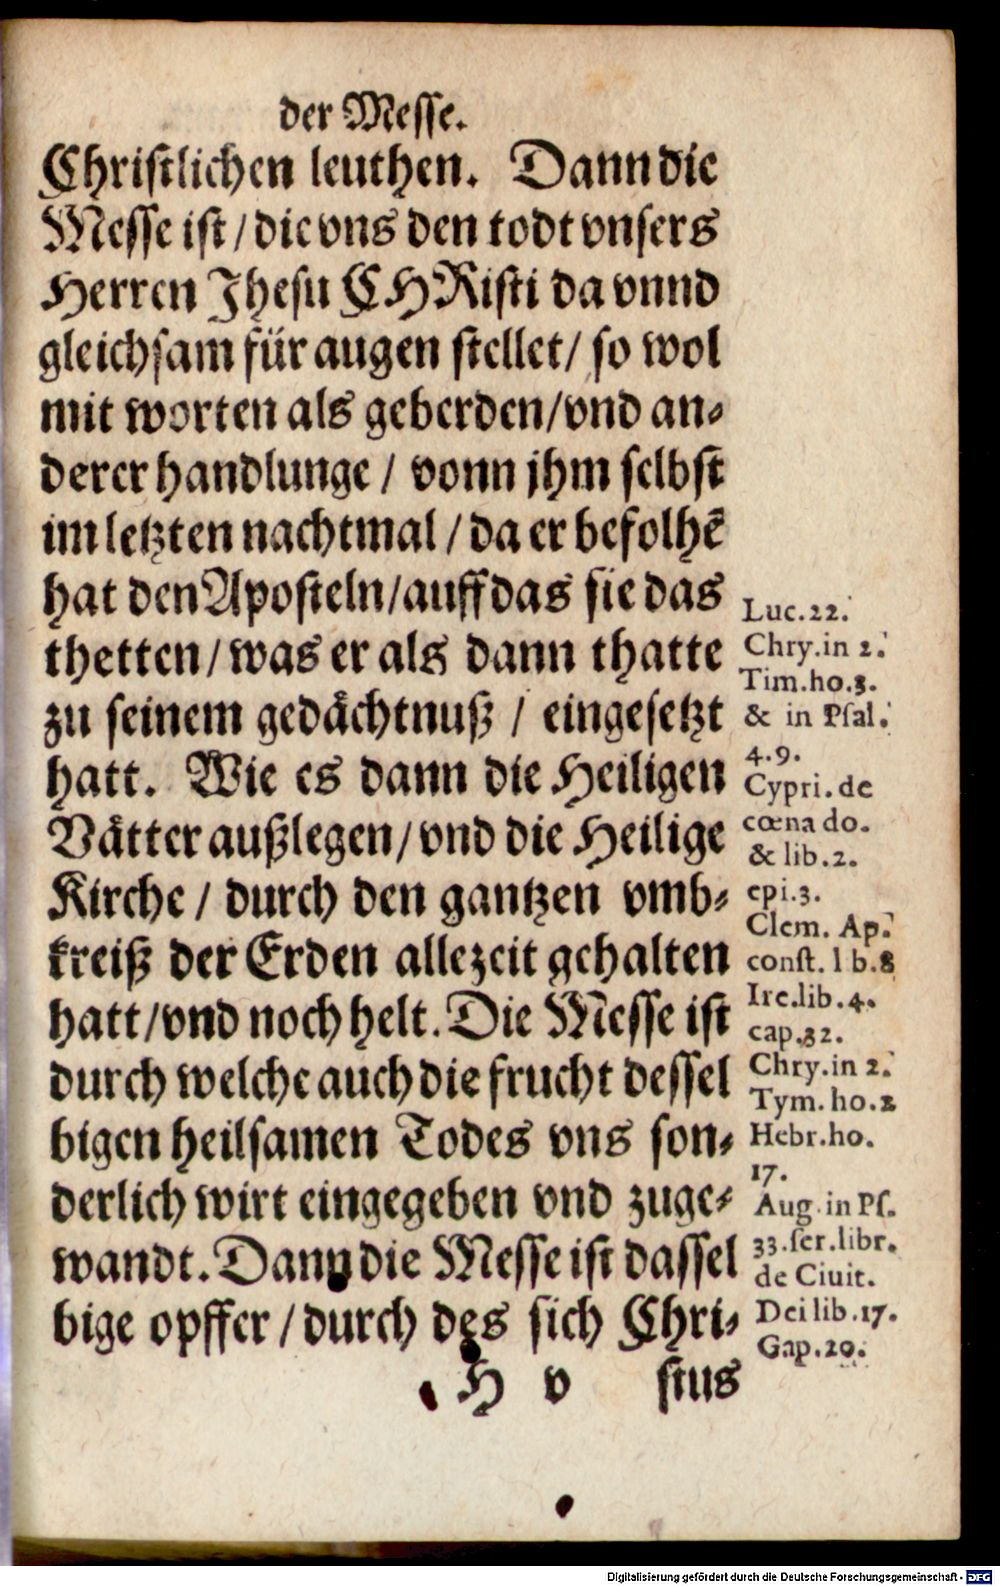 der Messe.
Christlichen leuthen. Dann die
Messe ist / die vns den todt vnsers
Herren Jhesu CHRisti da vnnd
gleichsam für augen stellet / so wol
mit worten als geberden / vnd an-
derer handlunge / vonn jhm selbst
im letzten nachtmal / da er befolhē
hat den Aposteln / auff das sie das
thetten / was er als dann thatte
zu seinem gedächtnuß / eingesetzt
hatt. Wie es dann die Heiligen
Vätter außlegen / vnd die Heilige
Kirche / durch den gantzen vmb-
kreiß der Erden allezeit gehalten
hatt / vnd noch helt. Die Messe ist
durch welche auch die frucht dessel
bigen heilsamen Todes vns son-
derlich wirt eingegeben vnd zuge-
wandt. Dann die Messe ist dassel
bige opffer / durch des sich Chri-
H v stus
Luc.22.
Chry.in 2.
Tim.ho.3.
& in Psal.
4.9.
Cypri. de
cœna do.
& lib.2.
epi.3.
Clem. Ap.
const. l b.8
Ire.lib.4.
cap.32.
Chry.in 2.
Tym.ho.2
Hebr.ho.
17.
Aug.in Ps.
33.ser.libr.
de Ciuit.
Dei lib.17.
Gap.20.
Digitalisierung gefördert durch die Deutsche Forschungsgemeinschaft - DFG